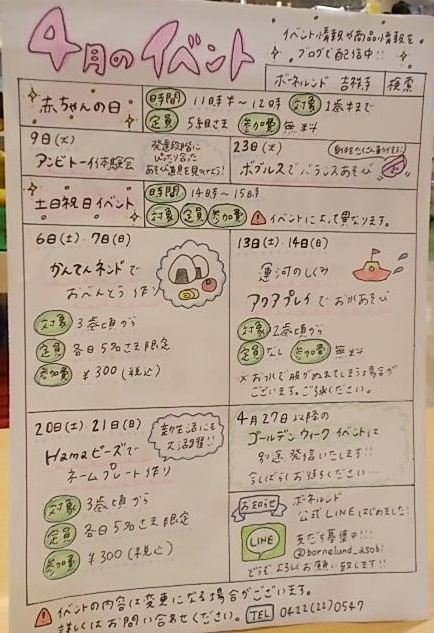 4月のイベント
イベント情報や商品情報を
ブログで配信中!!
ボーネルンド 吉祥寺 検索
赤ちゃんの日
時間 11時半〜12時 対象 1歳半まで
定員 5組さま 参加費 無料
9日(火)
アンビトーイ体験会
発達段階に
ぴったり合った
あそび道具を見つけよう!
23日(火)
ボブルスでバランスあそび
土日祝日イベント
時間 14時〜15時
対象 定員 参加費 イベントによって異なります。
6日(土)・7日(日)
かんてんネンドで
おべんとう作り
対象 3歳頃から
定員 各日5名さま限定
参加費 ¥300(税込)
13日(土)・14日(日)
運河のしくみ
アクアプレイでお水あそび
対象 2歳頃から
定員 なし 参加費 無料
※お水で服がぬれてしまう場合が
ございます。ご了承ください。
20日(土) 21日(日)
Hamaビーズで
ネームプレート作り
新生活にも
大活躍!!
対象 3歳頃から
定員 各日5名さま限定
参加費 ¥300(税込)
4月27日以降の
ゴールデンウィークイベントは
別途発信いたします!!
今しばらくお待ちください…
お知らせ
ボーネルンド
公式LINEはじめました!
LINE
友だち募集中!!!
@bornelund_asobi
どうぞよろしくお願い致します!!
イベントの内容は変更になる場合がございます。
詳しくはお問い合わせください。 TEL 0422(22)0547